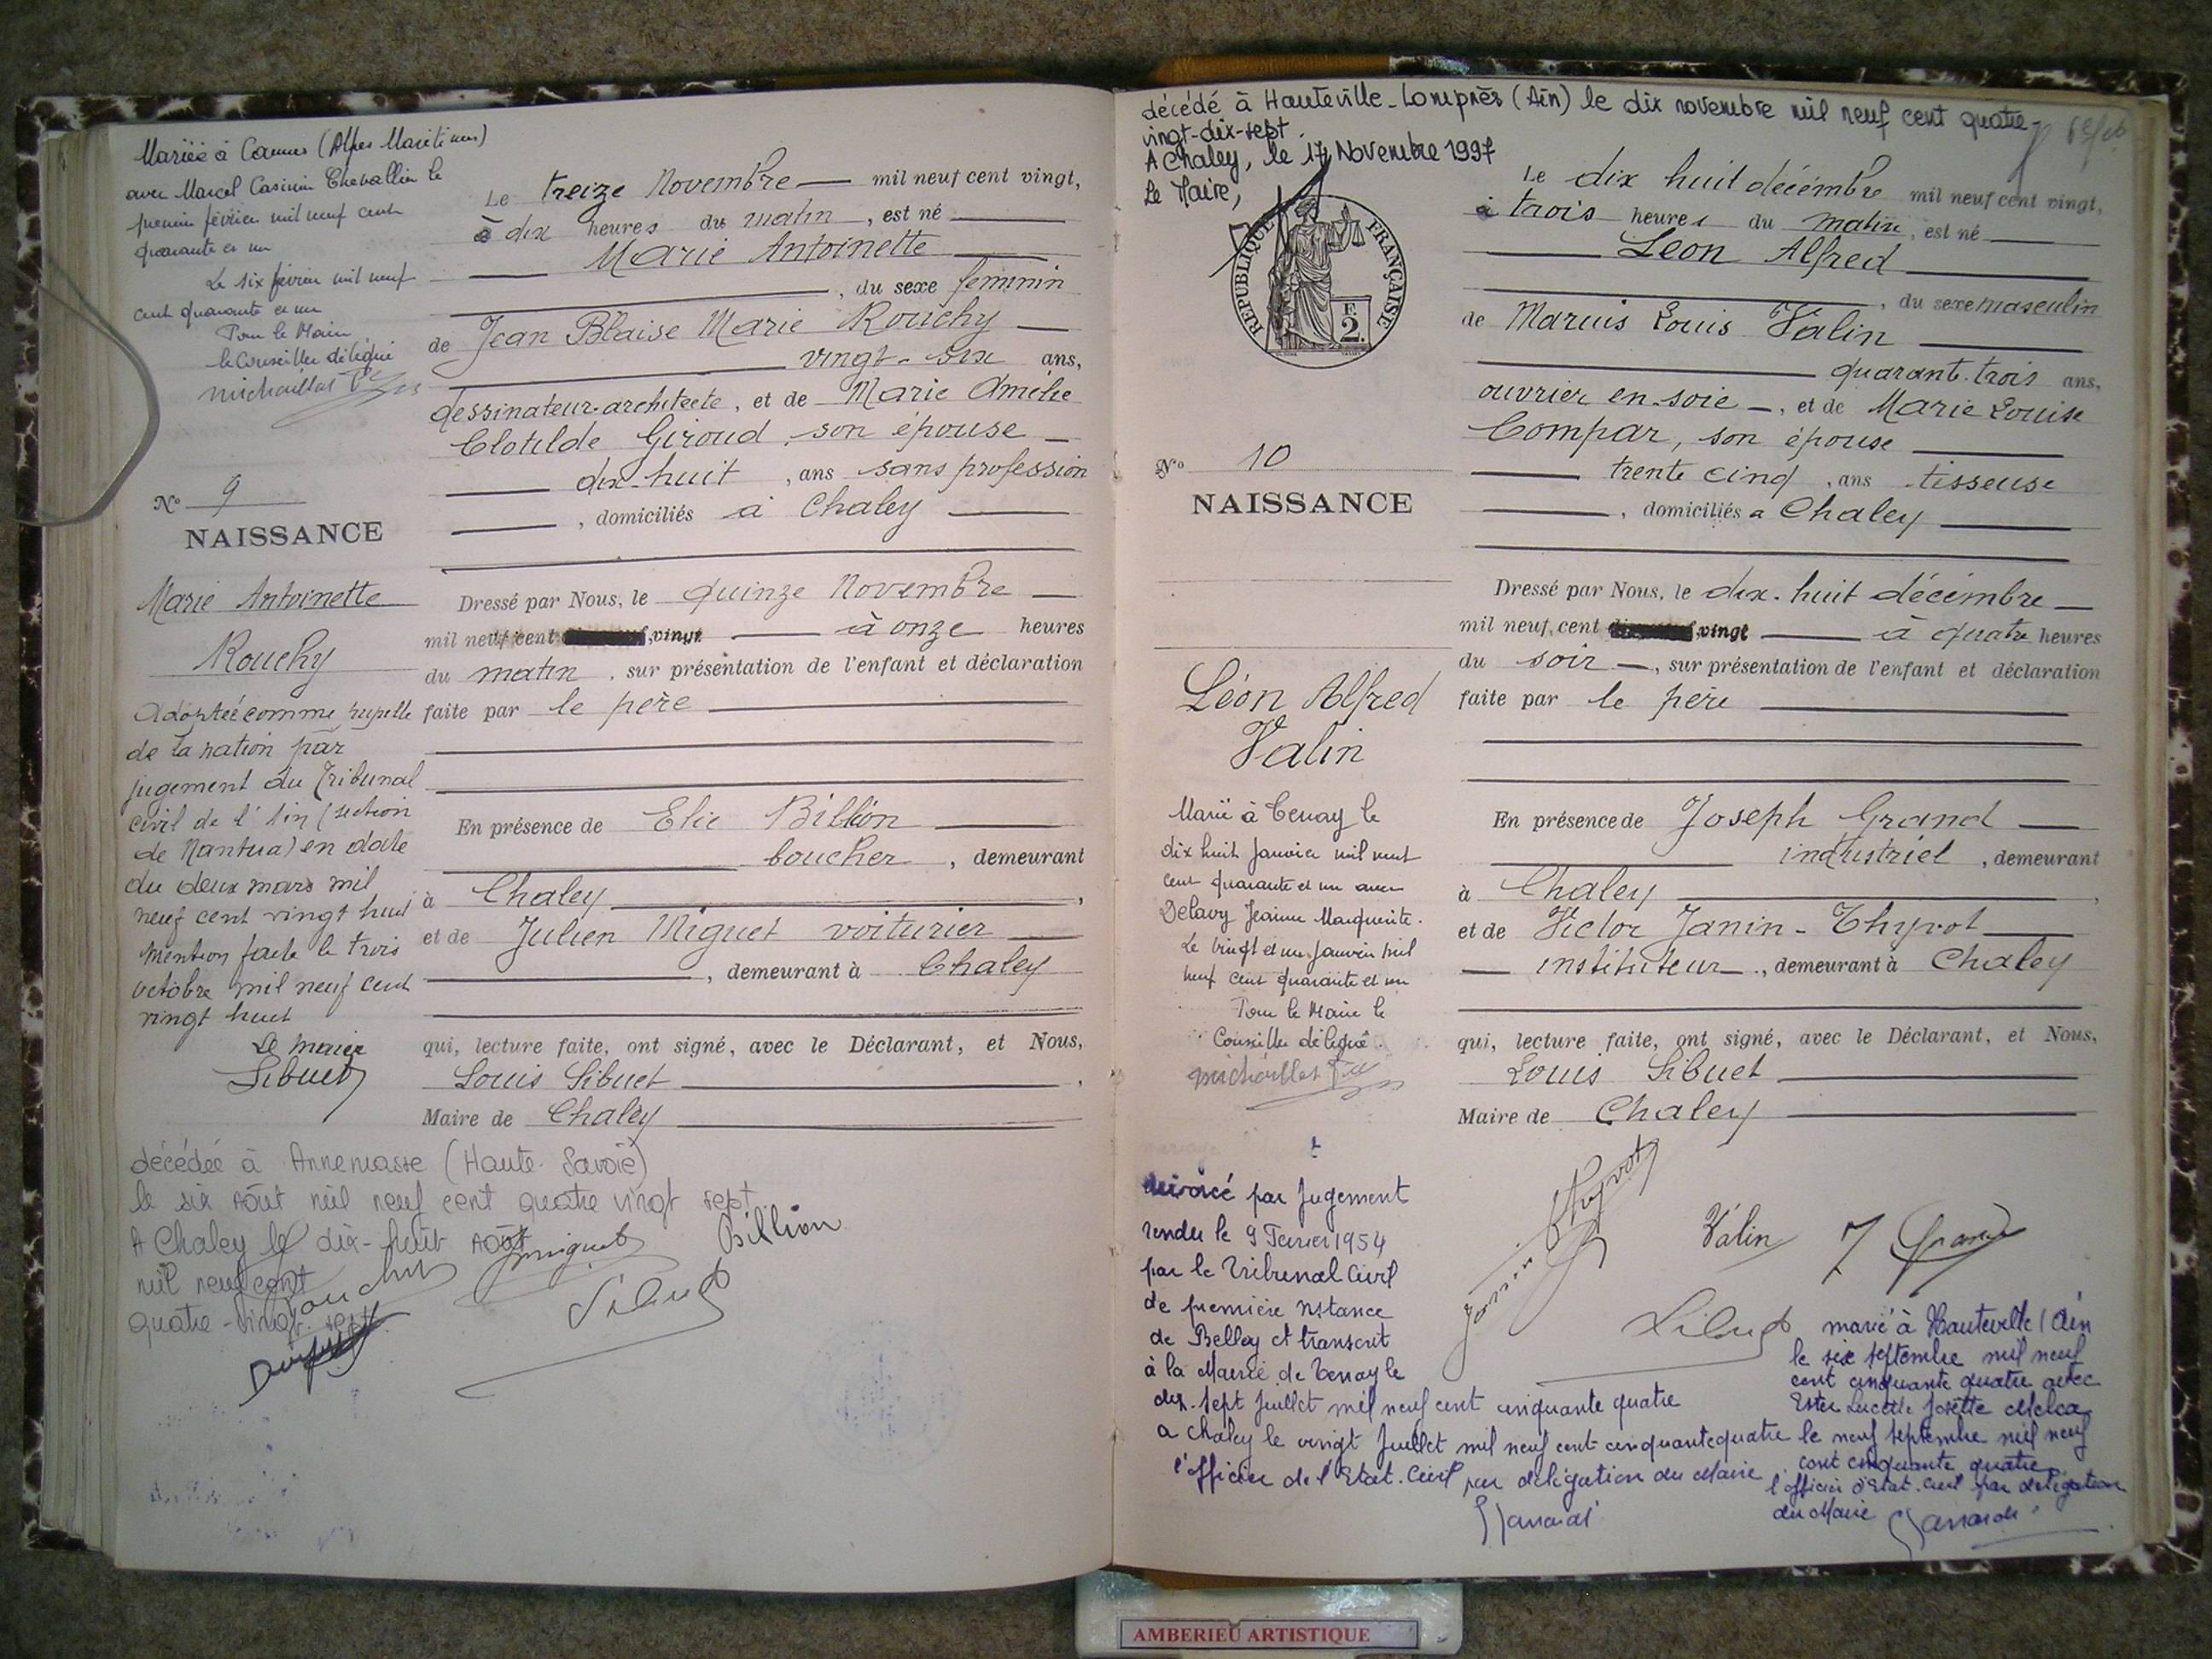 Mariée à Cannes (Alpes Maritimes)
avec Marcel Casimir Chevallier le
premier février mil neuf cent
quarante et un
Le six février mil neuf
cent quarante et un
Pour le Maire
le Conseiller délégué
N° 9
NAISSANCE
Marie Antoinette
Rouchy
Adoptée comme pupille
de la nation par
jugement du Tribunal
civil de l'Ain (section
de Nantua) en date
du deux mars mil
neuf cent vingt huit
Mention faite le trois
octobre mil neuf cent
vingt huit
Le maire
Sibuet
Le treize Novembre mil neuf cent vingt,
à dix heures du matin, est né
Marie Antoinette
, du sexe féminin
de Jean Blaise Marie Rouchy
vingt-six ans,
dessinateur-architecte, et de Marie Amélie
Clotilde Giroud, son épouse
dix-huit, ans sans profession
, domiciliés à Chaley
Dressé par Nous, le quinze Novembre
mil neuf cent vingt à onze heures
du matin, sur présentation de l'enfant et déclaration
faite par le père
En présence de Elie Billion
boucher, demeurant
à Chaley,
et de Julien Miguet voiturier
, demeurant à Chaley
qui, lecture faite, ont signé, avec le Déclarant, et Nous,
Louis Sibuet,
Maire de Chaley
décédée à Annemasse (Haute-Savoie)
le six Août mil neuf cent quatre vingt sept.
A Chaley le dix-huit Août
mil neuf cent
quatre-vingt-sept.
Rouchy
Jmiguet
Billion
Sibuet
décédé à Hauteville-Lompnès (Ain) le dix novembre mil neuf cent quatre-
vingt-dix-sept.
A Chaley, le 17 Novembre 1997
Le Maire,
REPUBLIQUE FRANÇAISE
F
2.
N° 10
NAISSANCE
Léon Alfred
Valin
Marié à Tenay le
dix huit janvier mil neuf
cent quarante et un avec
Delavy Jeanne Marguerite.
Le vingt et un janvier mil
neuf cent quarante et un
Pour le Maire le
Conseiller délégué.
Le dix huit décémbre mil neuf cent vingt,
à trois heures du matin, est né
Leon Alfred
, du sexe masculin
de Marius Louis Valin
quarante-trois ans,
ouvrier en soie, et de Marie Louise
Compar, son épouse
trente cinq, ans tisseuse
, domiciliés à Chaley
Dressé par Nous, le dix-huit décémbre
mil neuf cent vingt à quatre heures
du soir, sur présentation de l'enfant et déclaration
faite par le père
En présence de Joseph Grand
industriel, demeurant
à Chaley,
et de Victor Janin-Thyvot
instituteur, demeurant à Chaley
qui, lecture faite, ont signé, avec le Déclarant, et Nous,
Louis Sibuet
Maire de Chaley
Janin Thyvot
Valin
J Grand
Sibuet
divorcé par jugement
rendu le 9 Fevrier 1954
par le Tribunal Civil
de première instance
de Belley et transcrit
à la Mairie de Tenay le
dix-sept Juillet mil neuf cent cinquante quatre
a Chaley le vingt Juillet mil neuf cent cinquante quatre
l'officier de l'Etat-Civil par délégation du Maire.
marié à Hauteville (Ain
le six septembre mil neuf
cent cinquante quatre avec
Ester Lucette Josette
le neuf septembre mil neuf
cent cinquante quatre.
l'officier d'Etat-Civil par délégation
du Maire
AMBERIEU ARTISTIQUE